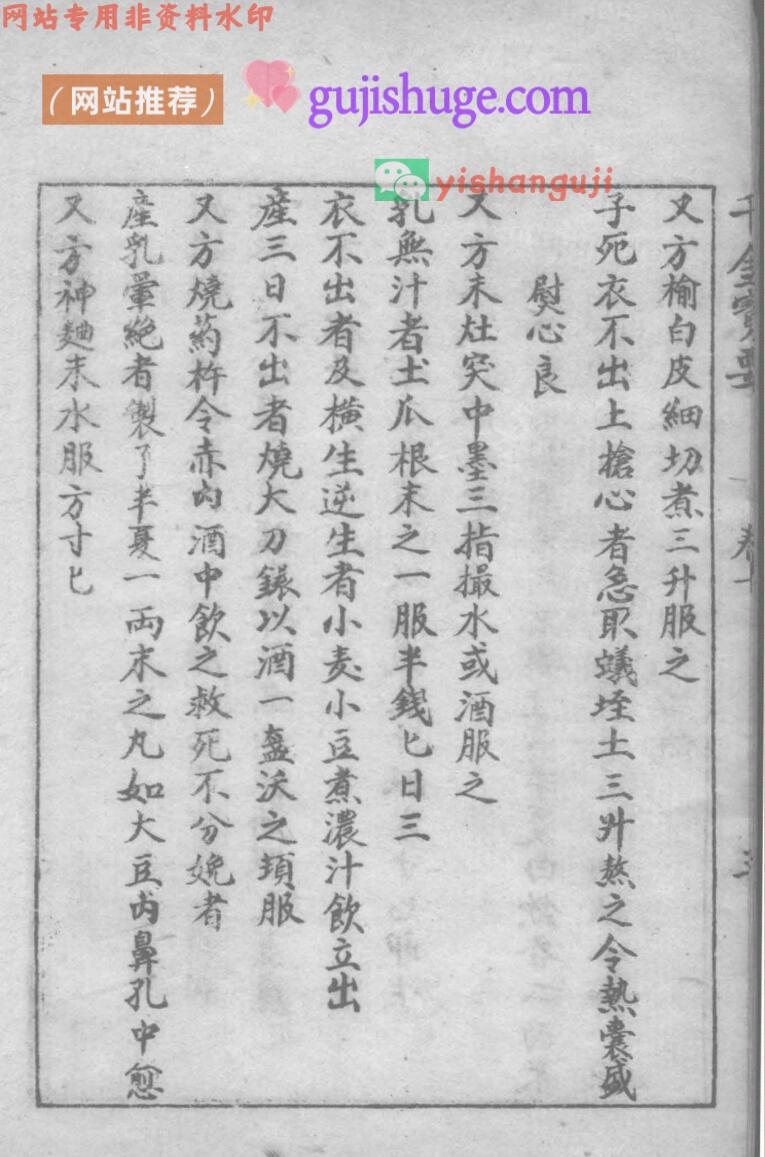 网站专用非资料水印
（网站推荐） gujishuge.com
yishanguji
又方榆白皮細切煮三升服之
子死衣不出上搶心者急取蟻垤土三升熬之令熱囊盛
熨心良
又方末灶突中墨三指撮水或酒服之
乳無汁者土瓜根末之一服半錢匕日三
衣不出者及橫生逆生者小麦小豆煮濃汁飲立出
産三日不出者燒大刀鐶以酒一盞沃之頓服
又方燒葯杵令赤内酒中飲之救死不分娩者
産乳暈絶者製了半夏一兩末之丸如大豆内鼻孔中愈
又方神麯末水服方寸匕